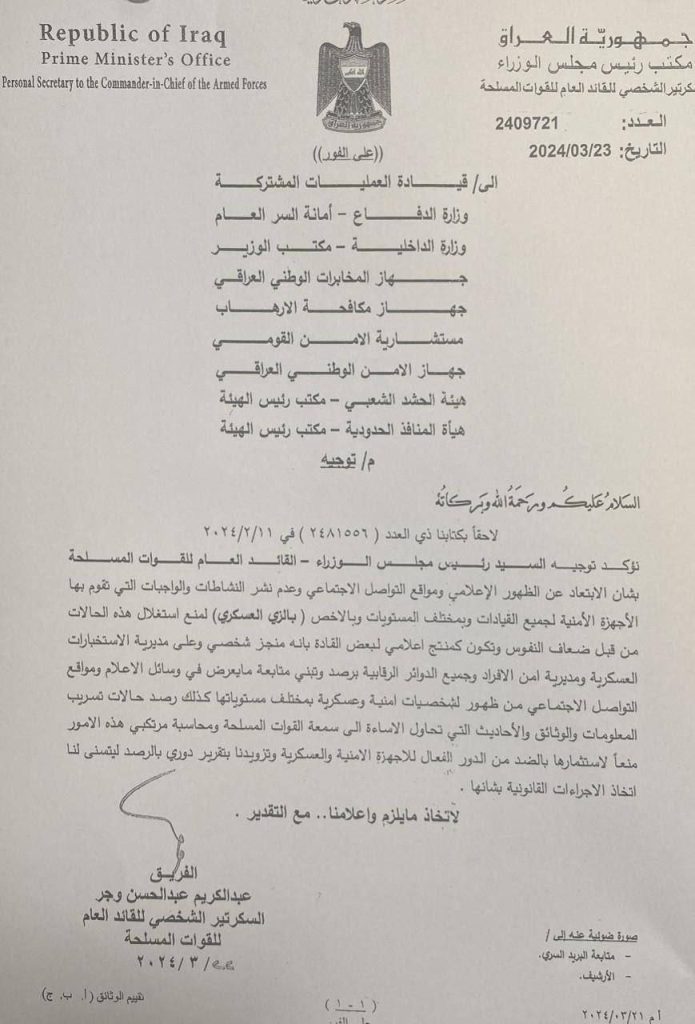 Republic of Iraq
Prime Minister's Office
Personal Secretary to the Commander-in-Chief of the Armed Forces
جمهوريّة العراق
مكتب رئيس مجلس الوزراء
سكرتير الشخصي للقائد العام للقوات المسلحة
العدد: 2409721
التاريخ: 2024/03/23
((على الفور))
الى/ قيادة العمليات المشتركة
وزارة الدفاع – أمانة السر العام
وزارة الداخلية – مكتب الوزير
جهاز المخابرات الوطني العراقي
جهاز مكافحة الارهاب
مستشارية الامن القومي
جهاز الامن الوطني العراقي
هيئة الحشد الشعبي – مكتب رئيس الهيئة
هيأة المنافذ الحدودية – مكتب رئيس الهيئة
م/ توجيه
السلام عليكم ورحمة الله وبركاته
لاحقاً بكتابنا ذي العدد ( ٢٤٨١٥٥٦ ) في ٢٠٢٤/٢/١١
نؤكد توجيه السيد رئيس مجلس الوزراء – القائد العام للقوات المسلحة
بشان الابتعاد عن الظهور الإعلامي ومواقع التواصل الاجتماعي وعدم نشر النشاطات والواجبات التي تقوم بها
الأجهزة الأمنية لجميع القيادات وبمختلف المستويات وبالاخص ( بالزي العسكري) لمنع استغلال هذه الحالات
من قبل ضعاف النفوس وتكون كمنتج اعلامي لبعض القادة بانه منجز شخصي وعلى مديرية الاستخبارات
العسكرية ومديرية امن الافراد وجميع الدوائر الرقابية برصد وتبني متابعة مايعرض في وسائل الاعلام ومواقع
التواصل الاجتماعي من ظهور لشخصيات امنية وعسكرية بمختلف مستوياتها كذلك رصد حالات تسريب
المعلومات والوثائق والأحاديث التي تحاول الاساءة الى سمعة القوات المسلحة ومحاسبة مرتكبي هذه الامور
منعاً لاستثمارها بالضد من الدور الفعال للاجهزة الامنية والعسكرية وتزويدنا بتقرير دوري بالرصد ليتسنى لنا
اتخاذ الاجراءات القانونية بشانها .
لاتخاذ مايلزم واعلامنا.. مع التقدير .
الفريق
عبدالكريم عبدالحسن وجر
السكرتير الشخصي للقائد العام
للقوات المسلحة
٢٠٢٤/ ٣ /
صورة ضوئية عنه إلى /
– متابعة البريد السري.
– الأرشيف.
تقييم الوثائق (أ. ب. ج)
(١ – ١)
أ م ٢٠٢٤/٠٣/٢١